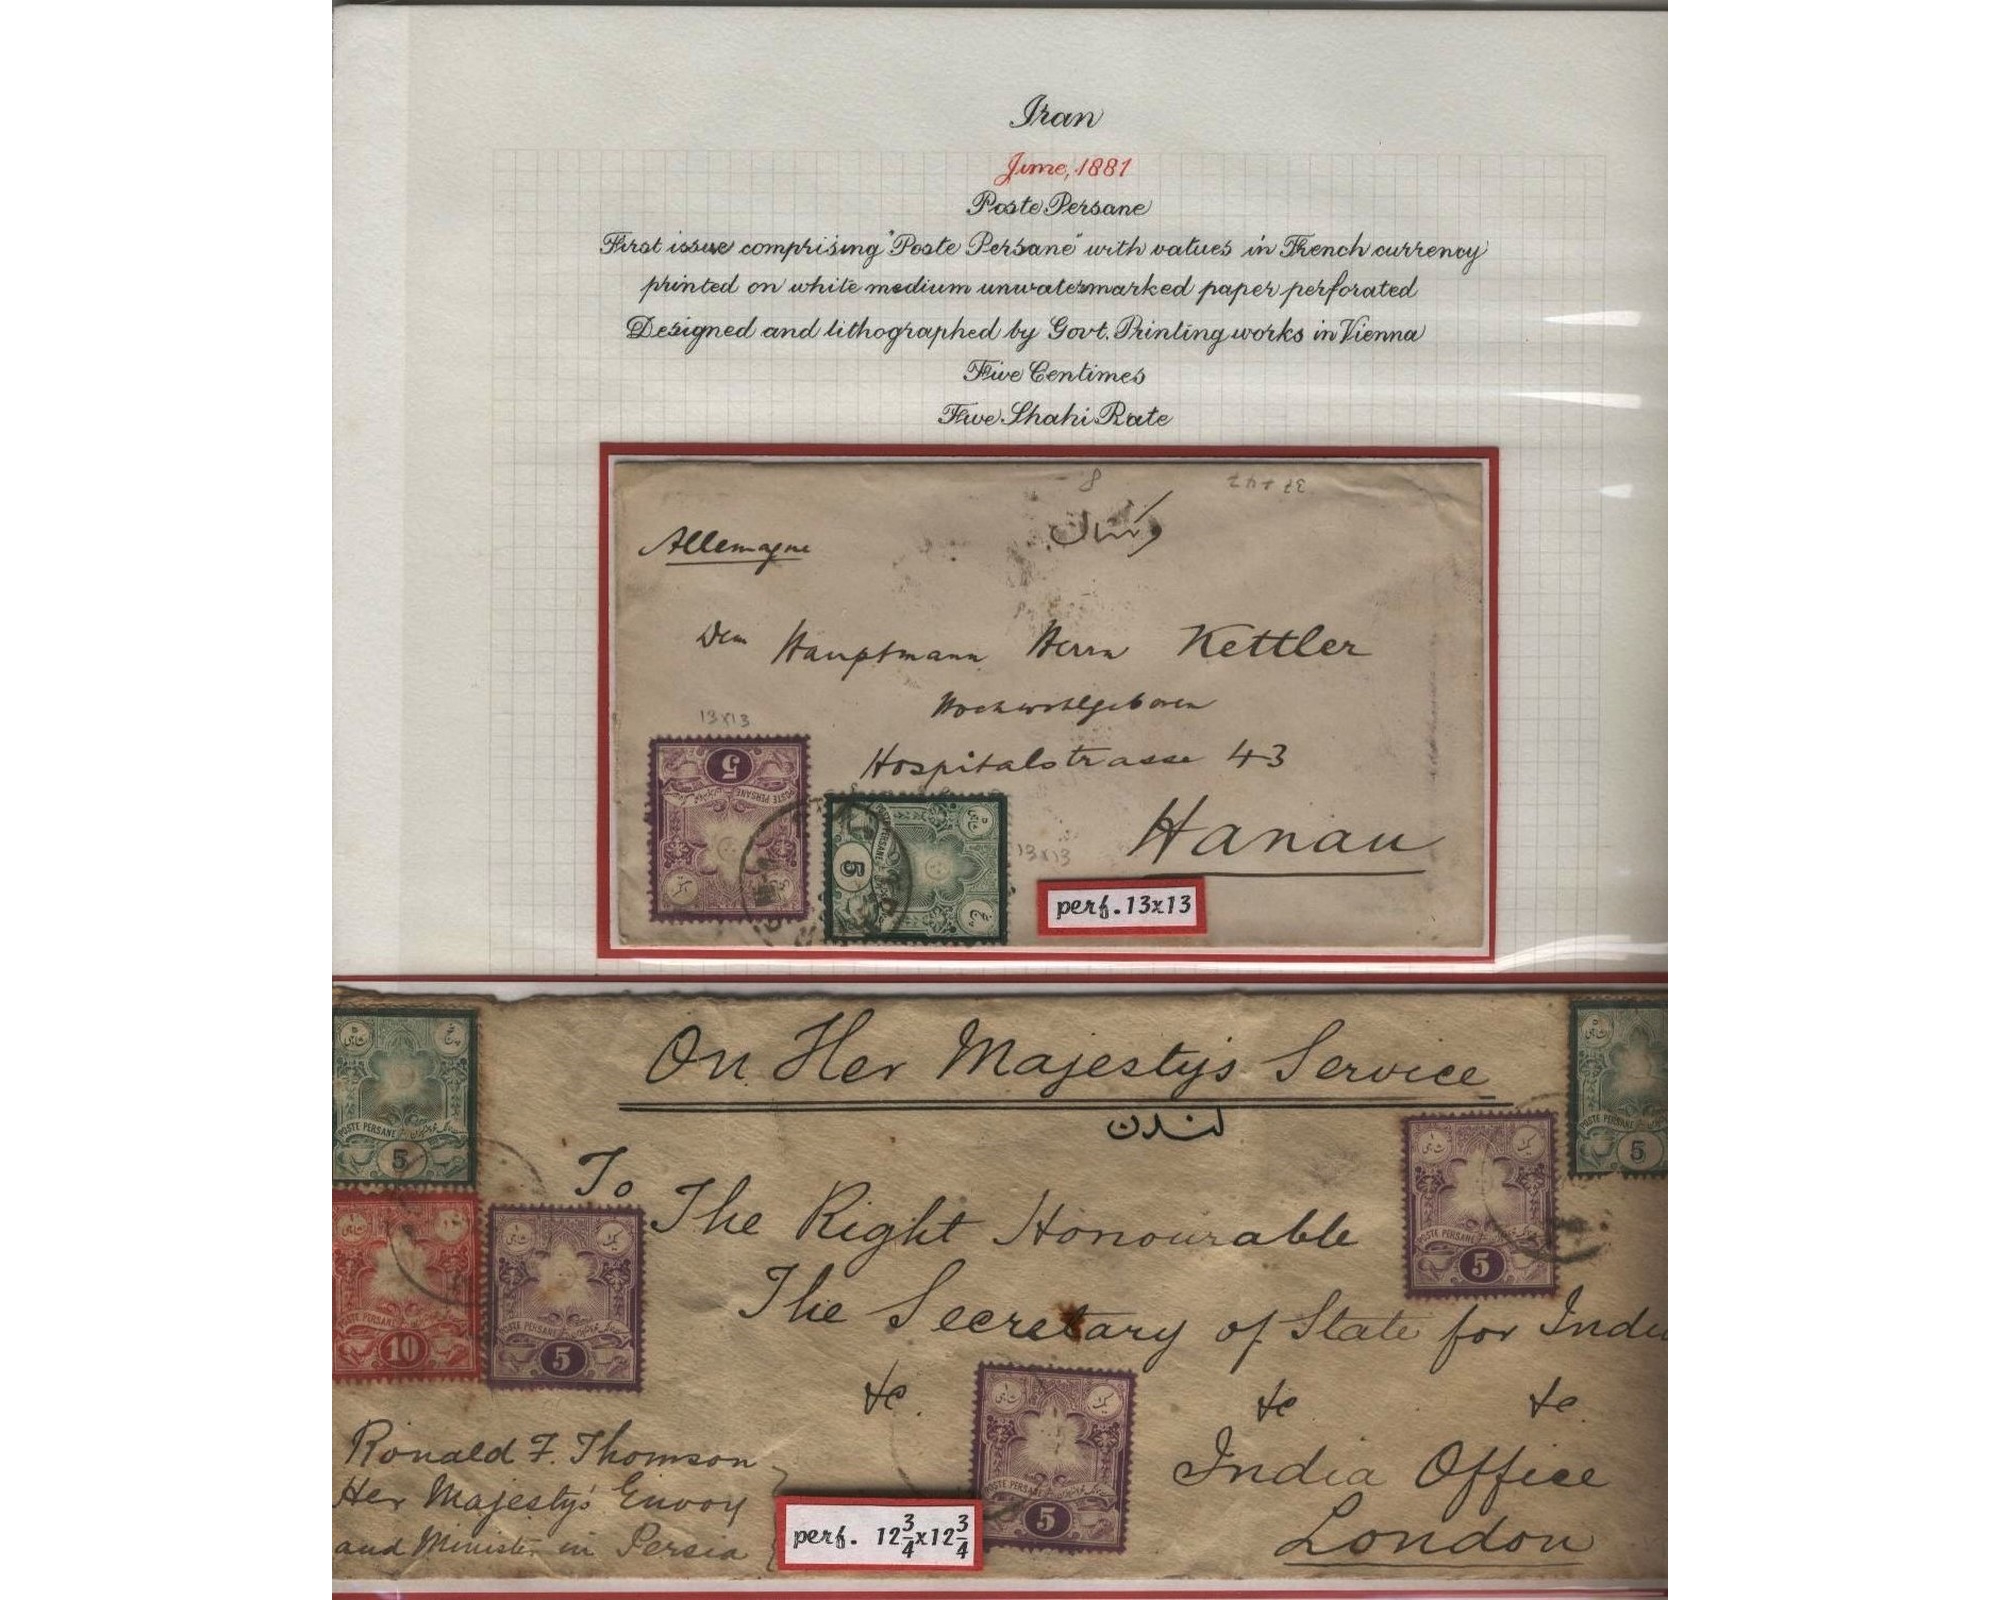 Iran
June, 1881
Poste Persane
First issue comprising "Poste Persane" with values in French currency
printed on white medium unwatermarked paper perforated
Designed and lithographed by Govt. Printing works in Vienna
Five Centimes
Five Shahi Rate
8
Allemagne
Dem Hauptmann Herrn Kettler
Hochwohlgeboren
13x13
Hospitalstrasse 43
5
POSTE PERSANE
5
POSTE PERSANE
13x13
Hanau
perf. 13x13
On Her Majesty's Service
لندن
POSTE PERSANE
5
POSTE PERSANE
5
To
The Right Honourable
POSTE PERSANE
5
The Secretary of State for
POSTE PERSANE
10
POSTE PERSANE
5
&c. &c. &c.
Ronald F. Thomson
Her Majesty's Envoy
and Minister in Persia
POSTE PERSANE
5
India Office
London
perf. 12 3/4 x 12 3/4